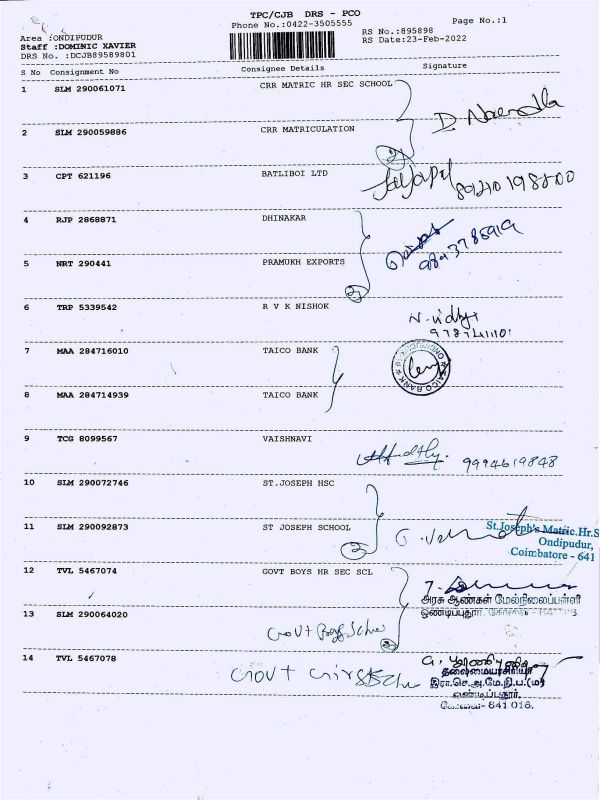 TPC/CJB DRS - PCO
Phone No.:0422-3505555
Page No.:1
Area :ONDIPUDUR
Staff :DOMINIC XAVIER
DRS No. :DCJB89589801
RS No.:895898
RS Date:23-Feb-2022
S No Consignment No Consignee Details Signature
1 SLM 290061071 CRR MATRIC HR SEC SCHOOL
2 SLM 290059886 CRR MATRICULATION
3 CPT 621196 BATLIBOI LTD
4 RJP 2868871 DHINAKAR
5 NRT 290441 PRAMUKH EXPORTS
6 TRP 5339542 R V K NISHOK
7 MAA 284716010 TAICO BANK
8 MAA 284714939 TAICO BANK
9 TCG 8099567 VAISHNAVI
9994619848
10 SLM 290072746 ST.JOSEPH HSC
11 SLM 290092873 ST JOSEPH SCHOOL
St.Joseph's Matric.Hr.S
Ondipudur,
Coimbatore - 641
12 TVL 5467074 GOVT BOYS HR SEC SCL
அரசு ஆண்கள் மேல்நிலைப்பள்ளி
ஒண்டிப்புதூர்,
13 SLM 290064020 Govt Boys School
14 TVL 5467078 Govt Girls
தலைமையாசிரியர்
இரா.செ.அ.மே.நி.ப.(ம)
ஒண்டிப்புதூர்,
கோவை- 641 016.